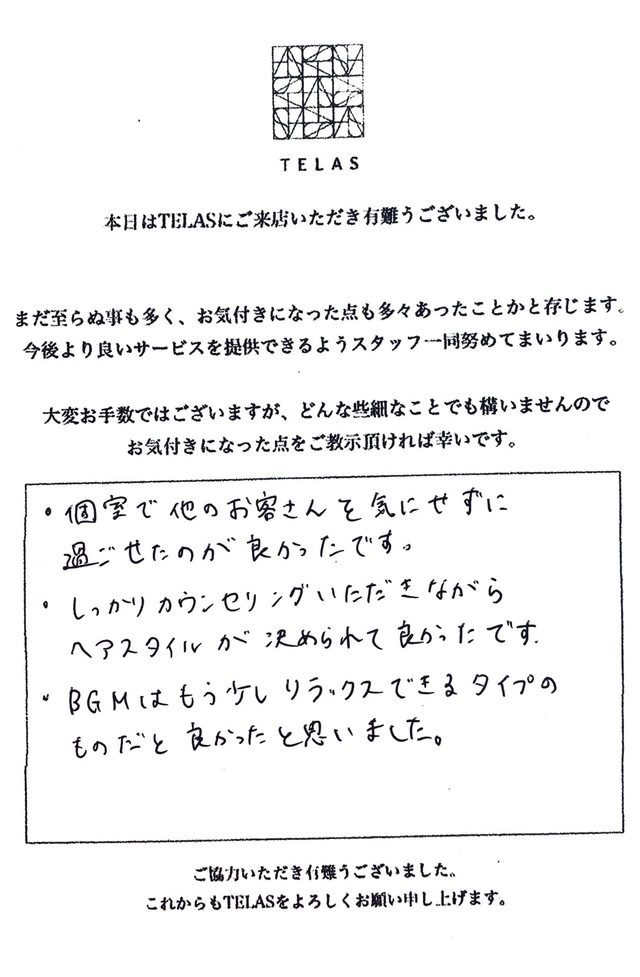 TELAS
本日はTELASにご来店いただき有難うございました。
まだ至らぬ事も多く、お気付きになった点も多々あったことかと存じます。
今後より良いサービスを提供できるようスタッフ一同努めてまいります。
大変お手数ではございますが、どんな些細なことでも構いませんので
お気付きになった点をご教示頂ければ幸いです。
・個室で他のお客さんを気にせずに
過ごせたのが良かったです。
・しっかりカウンセリングいただきながら
ヘアスタイルが決められて良かったです.
・BGMはもう少しリラックスできるタイプの
ものだと良かったと思いました。
ご協力いただき有難うございました。
これからもTELASをよろしくお願い申し上げます。